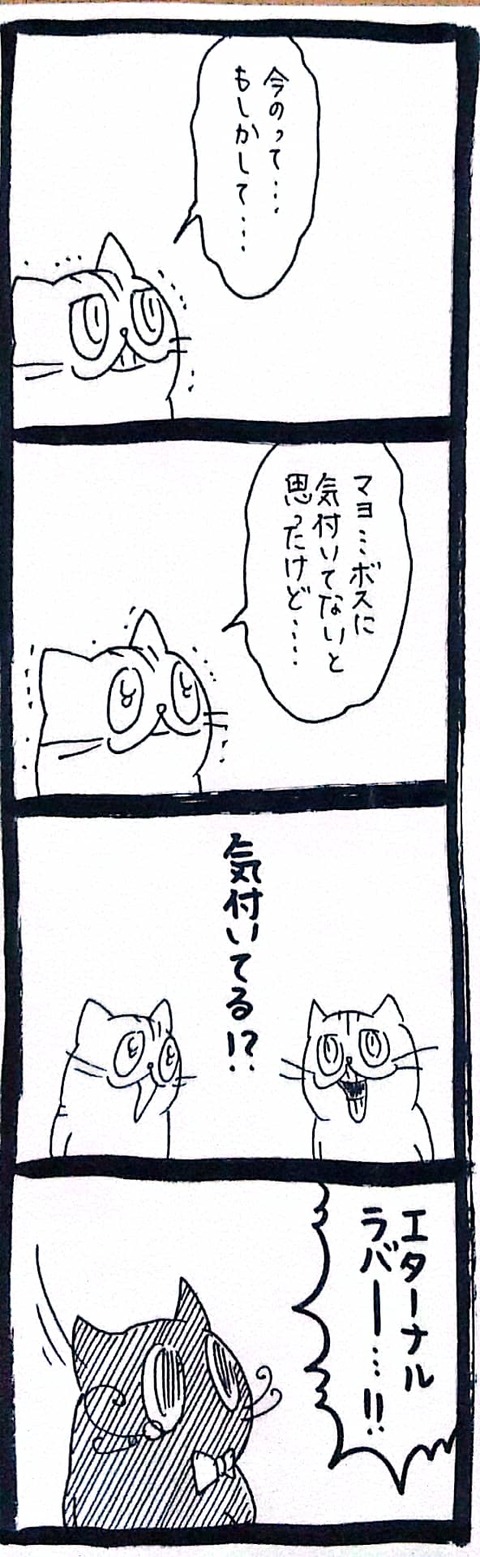 今のって…
もしかして…
マヨ…ボスに
気付いてないと
思ったけど…
気付いてる!?
エターナル
ラバー…!!